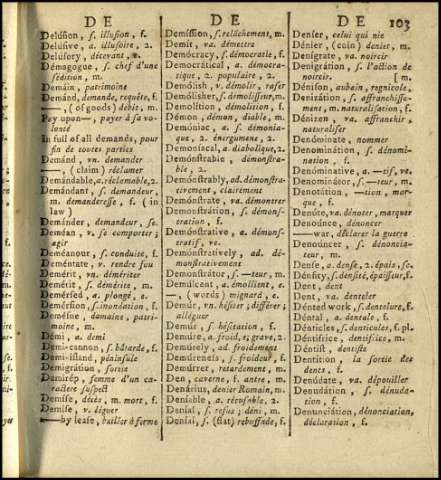 DE
DE
DE
103
Delúſion, ſ. illuſion, f.
Delúſive, a. illuſoire, 2.
Delúſory, décevant, e.
Démagogue, ſ. chef d'une
ſédition, m.
Demáin, patrimoine
Demánd, demande, requête, f.
—, (of goods) débit, m.
Pay upon—, payer à ſa vo-
lonté
In full of all demands, pour
fin de toutes parties
Demánd, vn. demander
—, (claim) réclamer
Demándable, a. réclamable, 2.
Demándant, ſ. demandeur,
m. demandereſſe, f. (in
law)
Demánder, demandeur, ſe.
Deméan, v. ſe comporter;
agir
Deméanour, ſ. conduite, f.
Deméntate, v. rendre fou
Demérit, vn. démériter
Demérit, ſ. démérite, m.
Demérſed, a. plongé, e.
Demérſion, ſ. inondation, f.
Deméſne, domaine, patri-
moine, m.
Démi, a. demi
Demi-cannon, ſ. bâtarde, f.
Demi-iſland, péninſule
Demigrátion, ſortie
Demirép, femme d'un ca-
ractere ſuſpect
Demiſe, décès, m. mort, f.
Demiſe, v. léguer
—by leaſe, bailler à ferme
Demíſſion, ſ. relâchement, m.
Demit, va. démettre
Demócracy, ſ. démocratie, f.
Democrátical, a. démocra-
tique, 2. populaire, 2.
Demóliſh, v. démolir, raſer
Demóliſher, ſ. démoliſſeur, m.
Demolítion, démolition, f.
Démon, démon, diable, m.
Demóniac, a. ſ. démonia-
que, 2. énergumene, 2.
Demoníacal, a. diabolique, 2.
Demónſtrable, démonſtra-
ble, 2.
Demónſtrably, ad. démonſtra-
tivement, clairement
Demónſtrate, va. démontrer
Demonſtrátion, ſ. démonſ-
tration, f.
Demónſtrative, a. démonſ-
tratif, ve.
Demónſtratively, ad. dé-
monſtrativement
Demonſtrátor, ſ. —teur, m.
Demúlcent, a. émollient, e.
—, (words) mignard, e.
Demúr, vn. héſiter; différer;
alléguer
Demúr, ſ. héſitation, f.
Demúre, a. froid, e; grave, 2.
Demúrely, ad. froidement
Demúreneſs, ſ. froideur, f.
Demúrrer, retardement, m.
Den, caverne, f. antre, m.
Denárius, denier Romain, m.
Deníable, a. récuſable, 2.
Denial, ſ. refus; déni, m.
Denial, ſ. (flat) rebuffade, f.
Denier, celui qui nie
Dénier, (coin) denier, m.
Denígrate, va. noircir
Denigrátion, ſ. l'action de
noircir. [m.
Déniſon, aubain, regnicole,
Denizátion, ſ. affranchiſſe-
ment, m. naturaliſation, f.
Dénizen, va. affranchir,
naturaliſer
Denóminate, nommer
Denominátion, ſ. dénomi-
nation, f.
Denóminative, a. —tif, ve.
Denominátor, ſ. —teur, m.
Denotátion, —tion, mar-
que, f.
Denóte, va. dénoter, marquer
Denóunce, dénoncer
—war, déclarer la guerre
Denóuncer, ſ. dénoncia-
teur, m.
Denſe, a. denſe, 2. épais, ſe.
Dénſity, ſ. denſité, épaiſſeur, f.
Dent, dent
Dent, va. denteler
Dénted work, ſ. dentelure, f.
Déntal, a. dentale, f.
Dénticles, ſ. denticules, f. pl.
Déntifrice, dentifrice, m.
Déntiſt, dentiſte
Dentition, la ſortie des
dents, f.
Denúdate, va. dépouiller
Denudátion, ſ. dénuda-
tion, f.
Denunciátion, dénonciation,
déclaration, f.